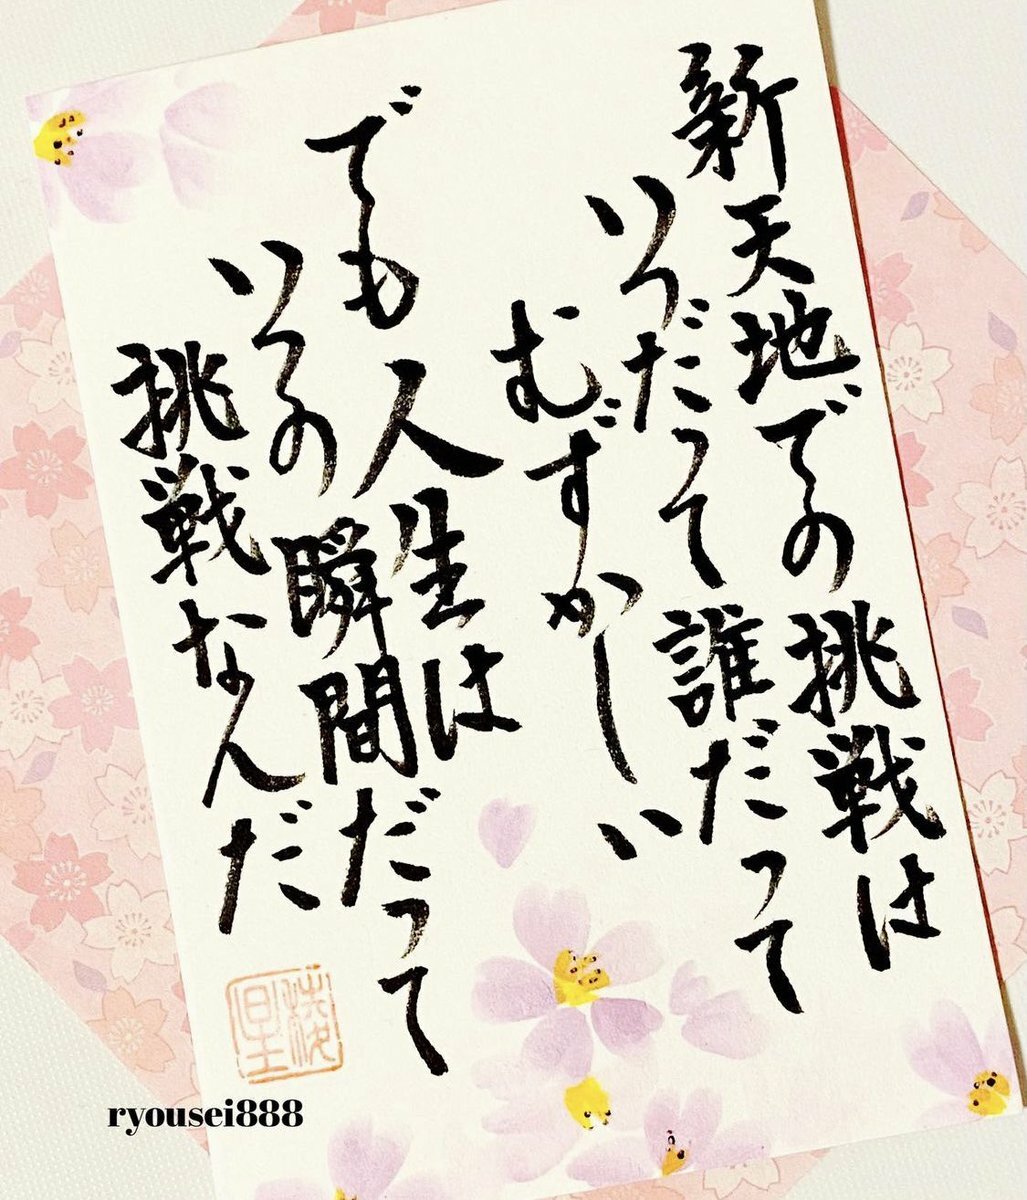 新天地での挑戦は
いつだって誰だって
むずかしい
でも人生は
いつの瞬間だって
挑戦なんだ
ryousei888